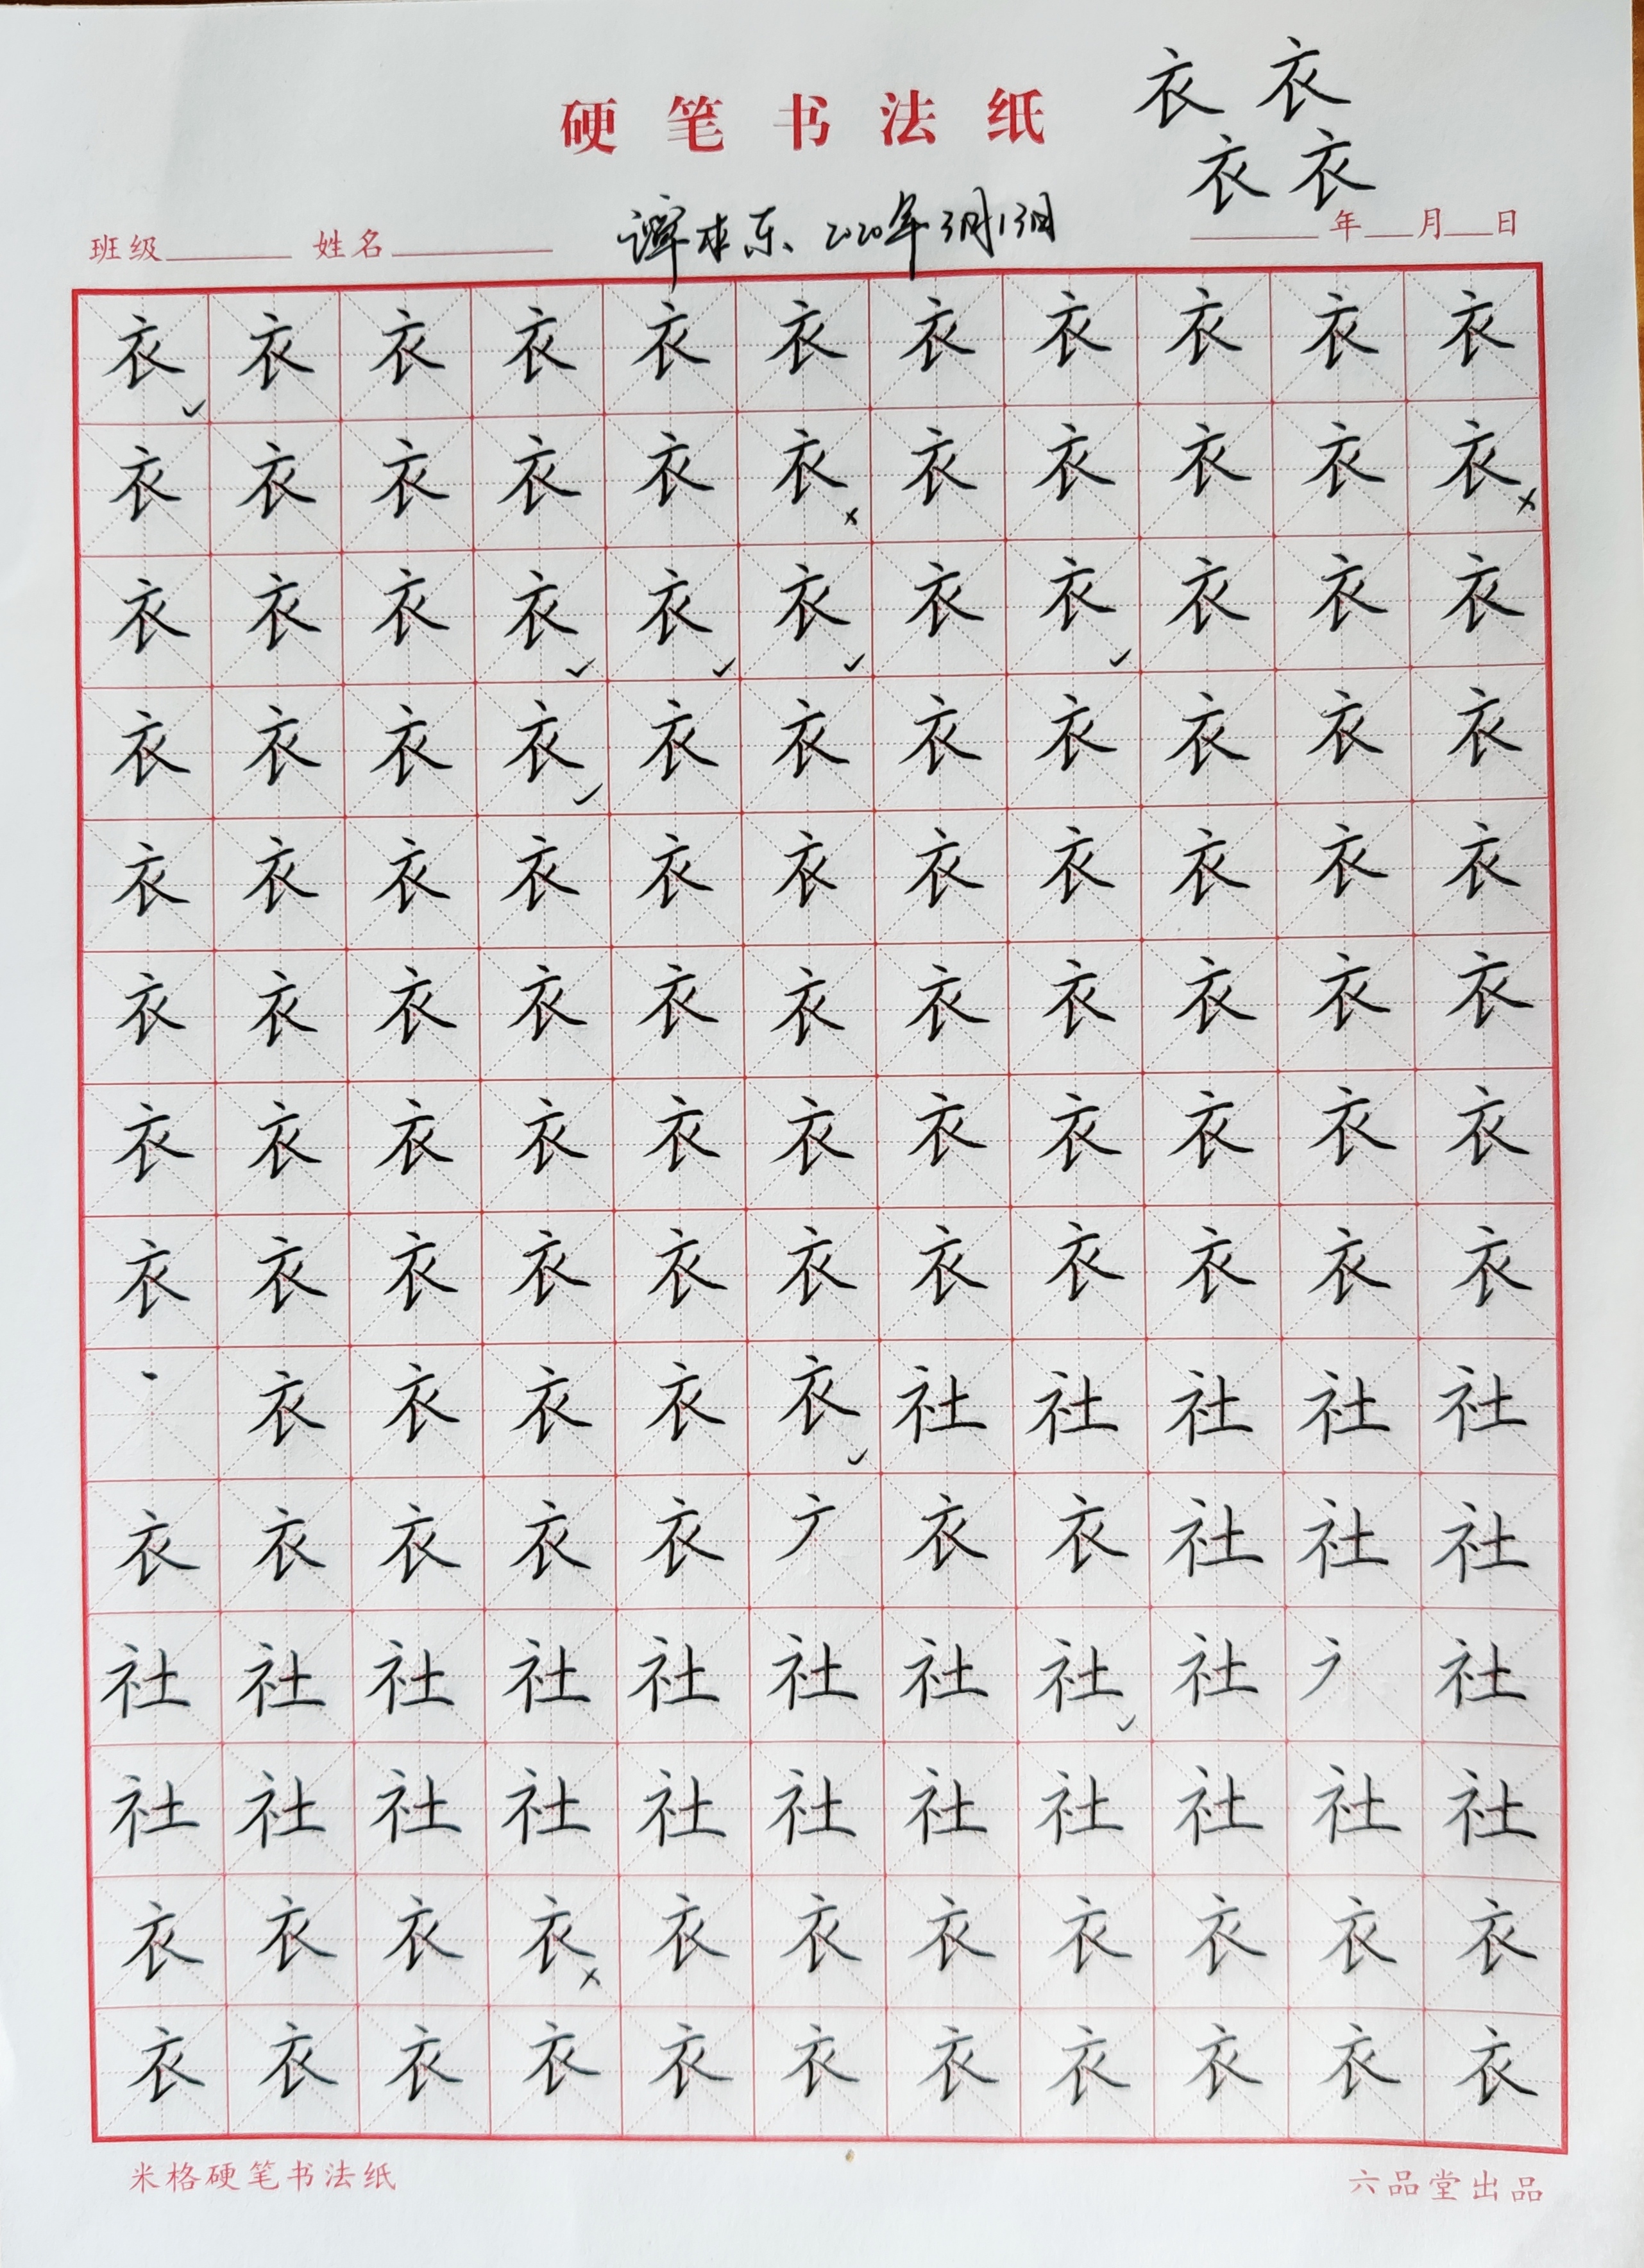 衣 衣
硬笔书法纸
衣 衣
2020年3月13日
班级 姓名 年 月 日
衣 衣 衣 衣 衣 衣 衣 衣 衣 衣 衣
衣 衣 衣 衣 衣 衣 衣 衣 衣 衣 衣
衣 衣 衣 衣 衣 衣 衣 衣 衣 衣 衣
衣 衣 衣 衣 衣 衣 衣 衣 衣 衣 衣
衣 衣 衣 衣 衣 衣 衣 衣 衣 衣 衣
衣 衣 衣 衣 衣 衣 衣 衣 衣 衣 衣
衣 衣 衣 衣 衣 衣 衣 衣 衣 衣 衣
衣 衣 衣 衣 衣 衣 衣 衣 衣 衣 衣
衣 衣 衣 衣 衣 社 社 社 社 社
衣 衣 衣 衣 衣 衣 衣 社 社 社
社 社 社 社 社 社 社 社 社 社
社 社 社 社 社 社 社 社 社 社 社
衣 衣 衣 衣 衣 衣 衣 衣 衣 衣 衣
衣 衣 衣 衣 衣 衣 衣 衣 衣 衣 衣
米格硬笔书法纸 六品堂出品